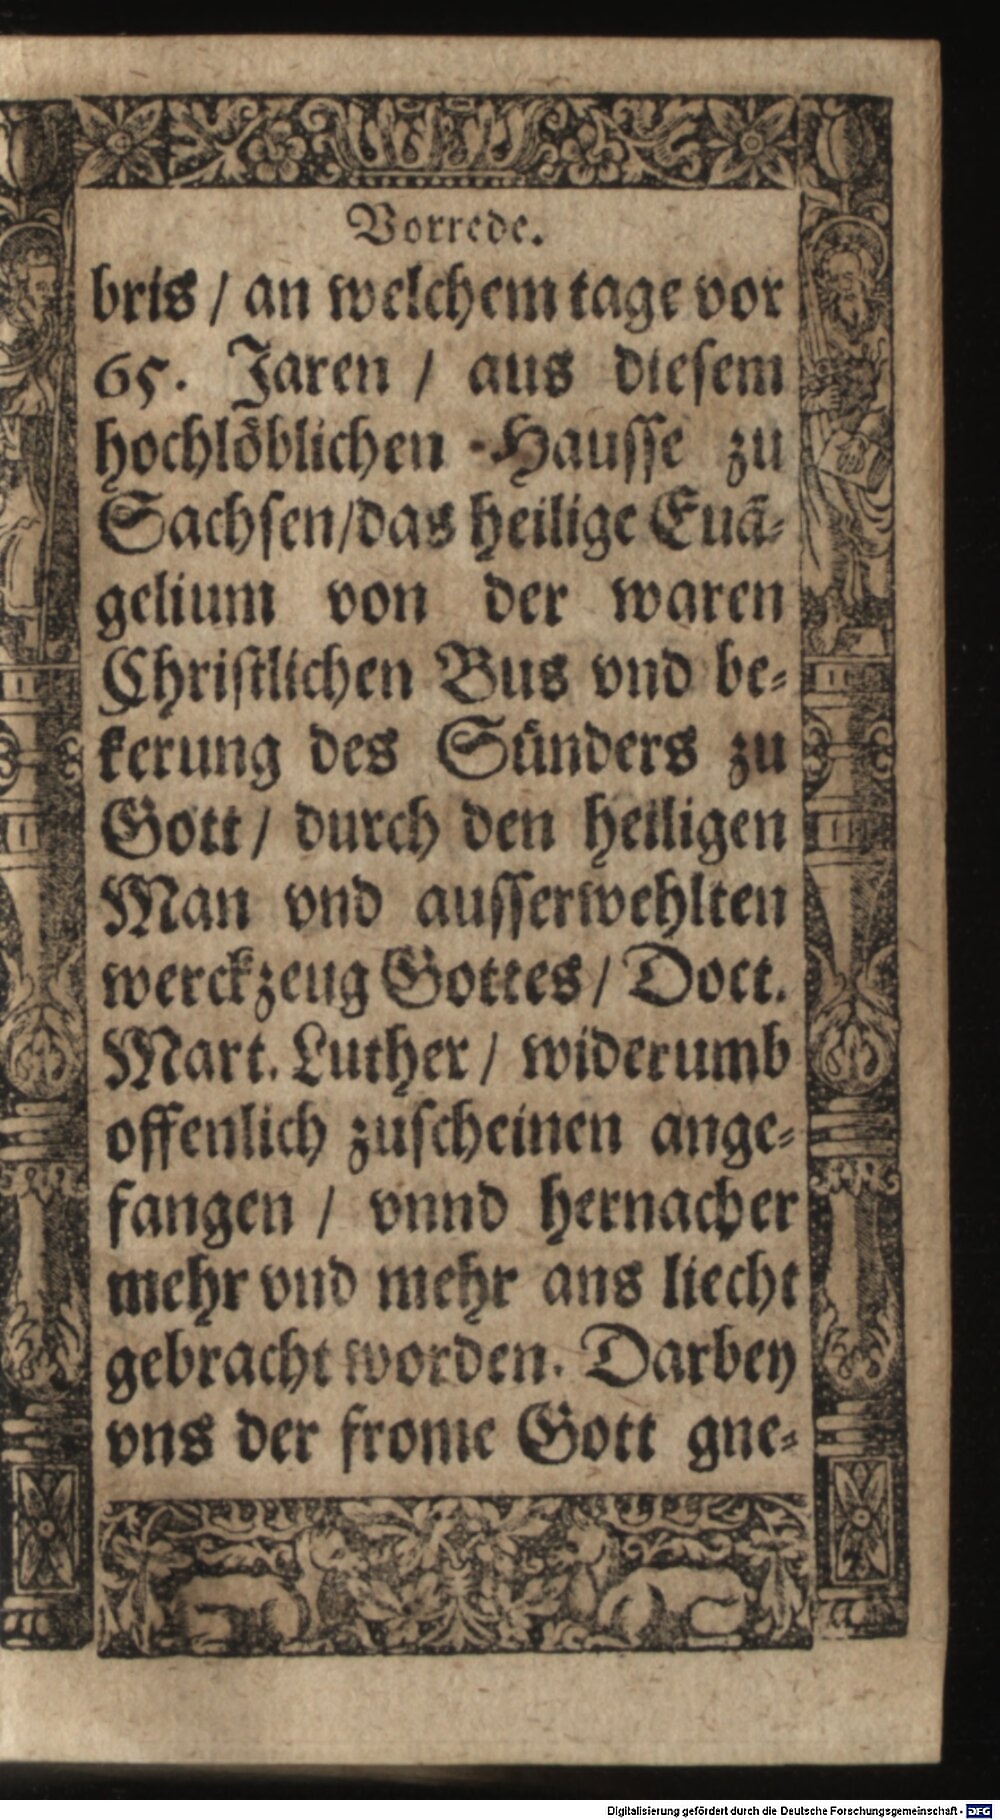 Vorrede.
bris / an welchem tage vor
65. Jaren / aus diesem
hochlöblichen Hausse zu
Sachsen/das heilige Euã-
gelium von der waren
Christlichen Bus vnd be-
kerung des Sünders zu
Gott / durch den heiligen
Man vnd ausserwehlten
werckzeug Gottes / Doct.
Mart. Luther / widerumb
offenlich zuscheinen ange-
fangen / vnnd hernacher
mehr vnd mehr ans liecht
gebracht worden. Darbey
vns der frome Gott gne-
Digitalisierung gefördert durch die Deutsche Forschungsgemeinschaft - DFG